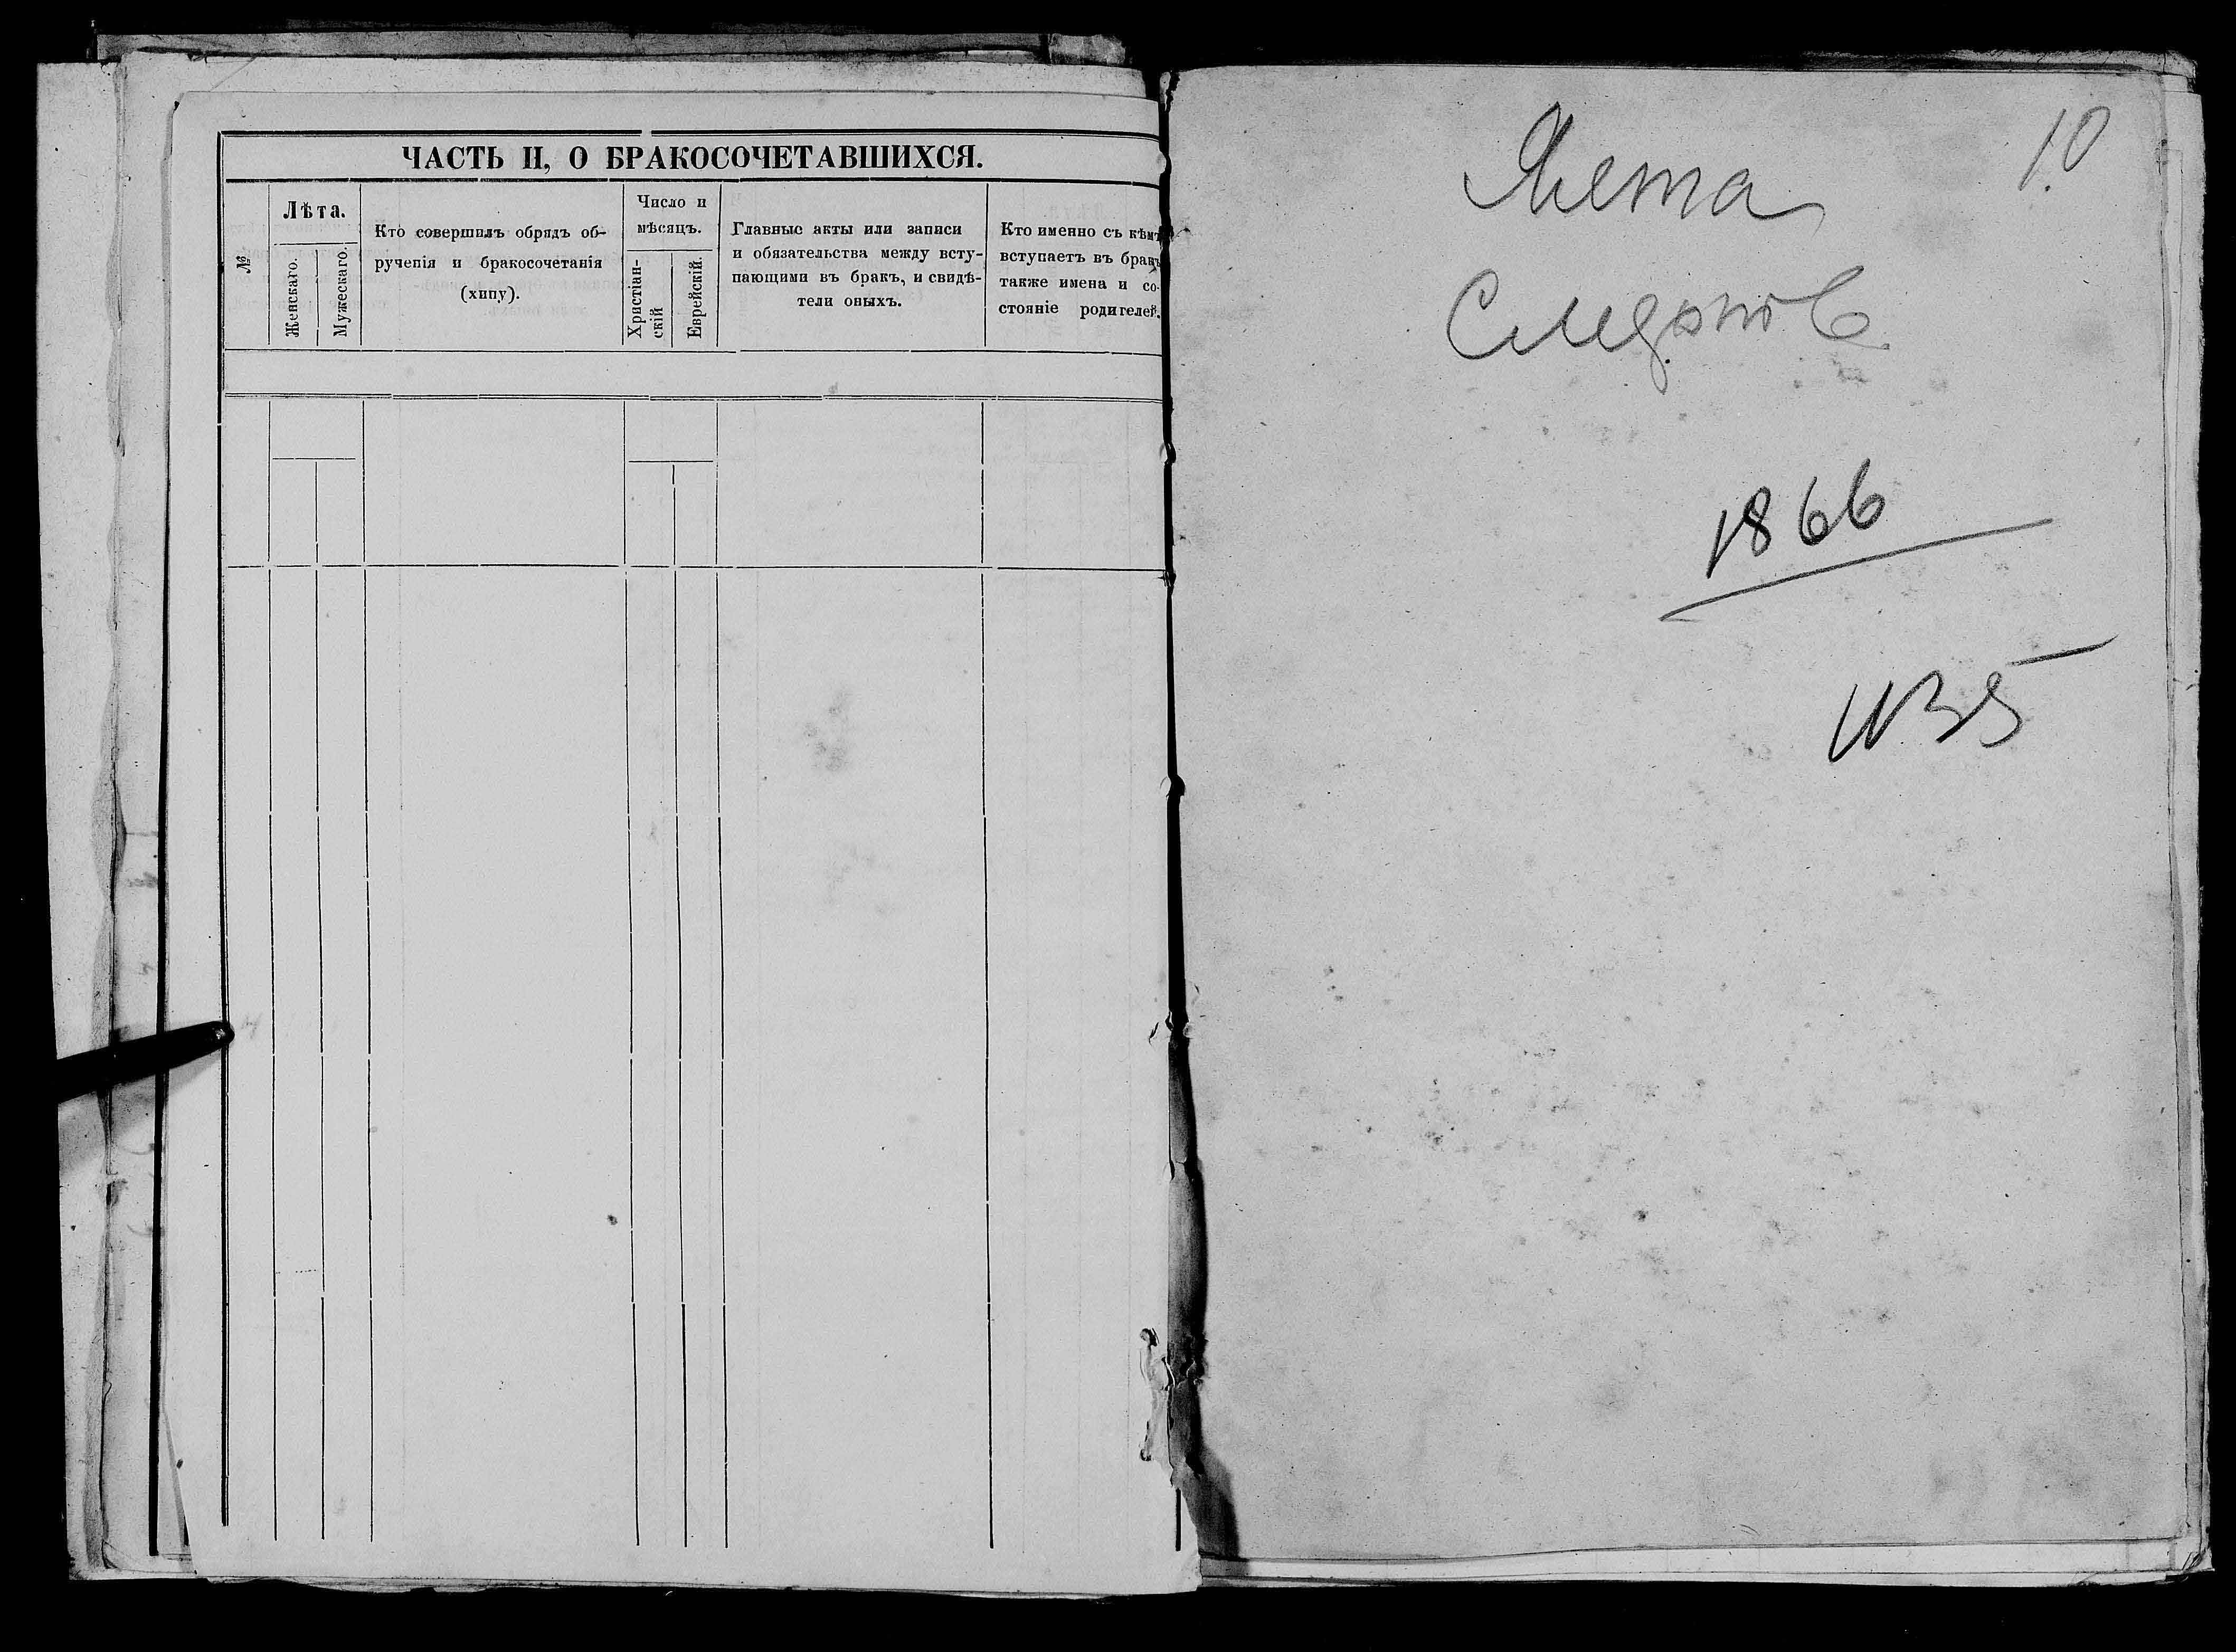 ЧАСТЬ II, О БРАКОСОЧЕТАВШИХСЯ.
№
Лѣта.
Женскаго.
Мужескаго.
Кто совершилъ обрядъ об-
рученія и бракосочетанія
(хипу).
Число и
мѣсяцъ.
Христіан-
скій
Еврейскій.
Главные акты или записи
и обязательства между всту-
пающими въ бракъ, и свидѣ-
тели оныхъ.
Кто именно съ кѣмъ
вступаетъ въ бракъ
также имена и со-
стояніе родителей.
10
1866